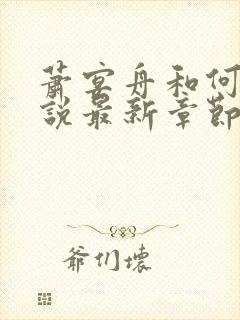 蕭宴舟和何
說最新章節
爺們壞